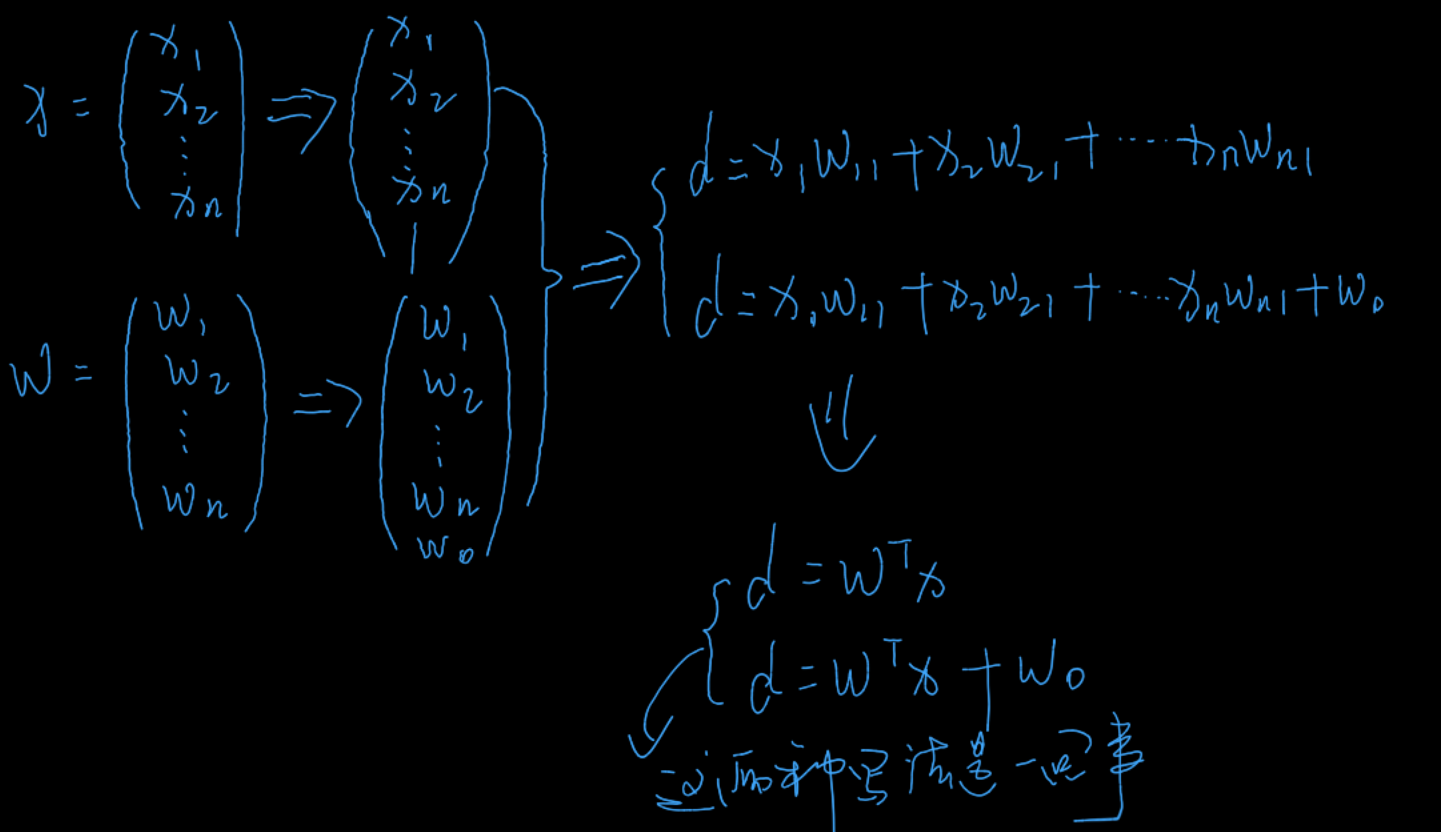 x = (x₁ x₂ ⋮ xₙ) ⇒ (x₁ x₂ ⋮ xₙ 1)
w = (w₁ w₂ ⋮ wₙ) ⇒ (w₁ w₂ ⋮ wₙ w₀)
⇒ { d = x₁w₁₁ + x₂w₂₁ + ····· xₙwₙ₁
d = x₁w₁₁ + x₂w₂₁ + ····· xₙwₙ₁ + w₀
⇓
{ d = wᵀx
d = wᵀx + w₀
这两种写法是一回事